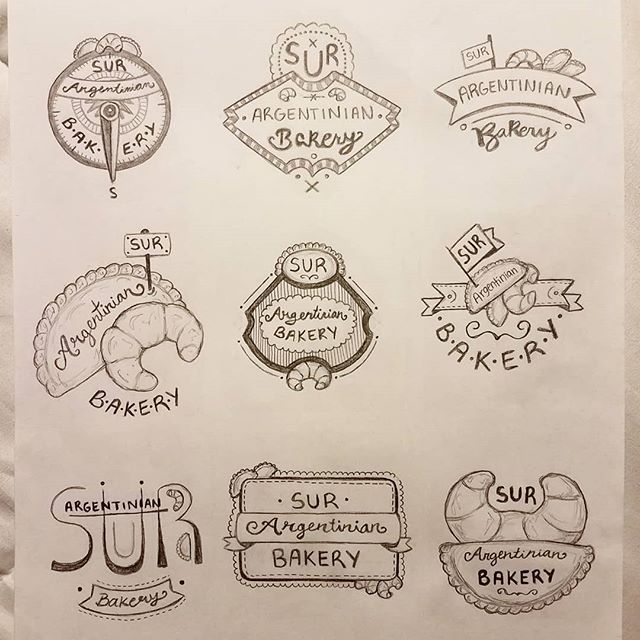 SUR
Argentinian
B·A·K·ERY
S
SUR
ARGENTINIAN
Bakery
SUR
ARGENTINIAN
Bakery
SUR
Argentinian
B·A·K·E·R·Y
SUR
Argentinian
BAKERY
SUR
Argentinian
B·A·K·E·R·Y
ARGENTINIAN
SUR
Bakery
· SUR ·
Argentinian
BAKERY
SUR
Argentinian
BAKERY